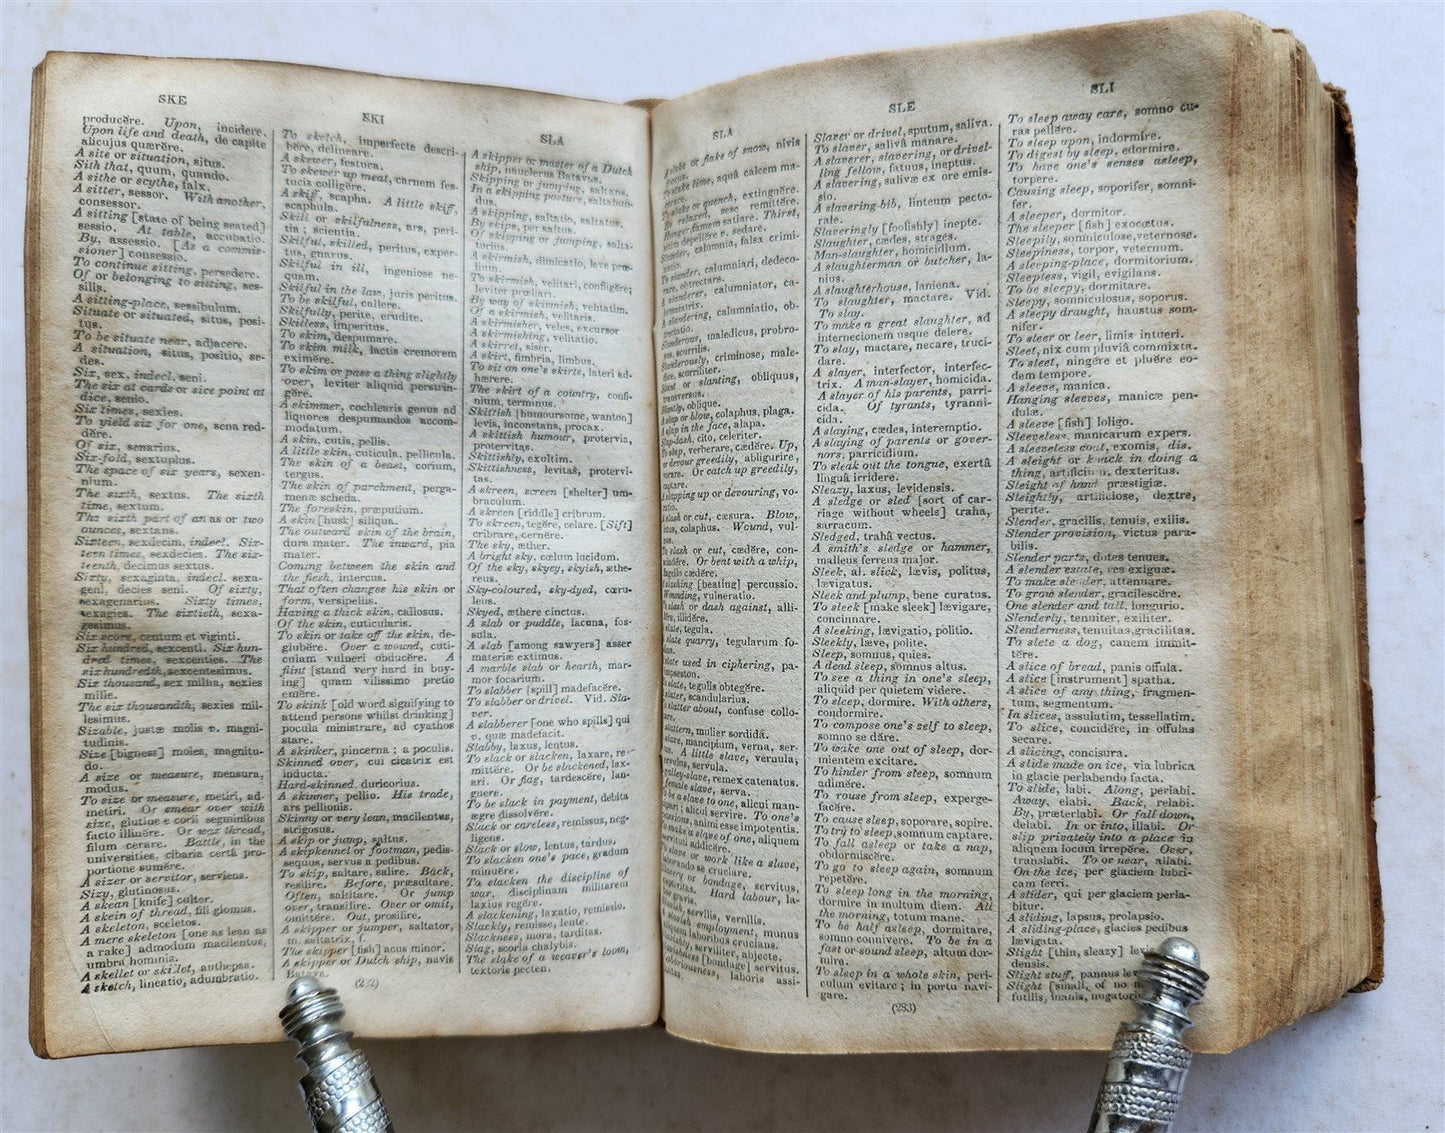 SKE
producĕre. Upon, incidere.
Upon life and death, de capite
alicujus quærĕre.
A site or situation, situs.
Sith that, quum, quando.
A sithe or scythe, falx.
A sitter, sessor. With another,
consessor.
A sitting [state of being seated]
sessio. At table, accubatio.
By, assessio. [As a commis-
sioner] consessio.
To continue sitting, persedere.
Of or belonging to sitting, ses-
silis.
A sitting-place, sessibulum.
Situate or situated, situs, posi-
tus.
To be situate near, adjacere.
A situation, situs, positio, se-
des.
Six, sex, indecl. seni.
The six at cards or sice point at
dice, senio.
Six times, sexies.
To yield six for one, sena red-
dĕre.
Of six, senarius.
Six-fold, sextuplus.
The space of six years, sexen-
nium.
The sixth, sextus. The sixth
time, sextum.
The sixth part of an as or two
ounces, sextans.
Sixteen, sexdecim, indecl. Six-
teen times, sexdecies. The six-
teenth, decimus sextus.
Sixty, sexaginta, indecl. sexa-
geni, decies seni. Of sixty,
sexagenarius. Sixty times,
sexagies. The sixtieth, sexa-
gesimus.
Six score, centum et viginti.
Six hundred, sexcenti. Six hun-
dred times, sexcenties. The
six hundredth, sexcentesimus.
Six thousand, sex millia, sexies
mille.
The six thousandth, sexies mil-
lesimus.
Sizable, justæ molis v. magni-
tudinis.
Size [bigness] moles, magnitu-
do.
A size or measure, mensura,
modus.
To size or measure, metiri, ad-
metiri. Or smear over with
size, glutine e corii segminibus
facto illinĕre. Or wax thread,
filum cerare. Battle, in the
universities, cibaria certâ pro-
portione sumĕre.
A sizer or servitor, serviens.
Sizy, glutinosus.
A skean [knife] culter.
A skein of thread, fili glomus.
A skeleton, sceletos.
A mere skeleton [one as lean as
a rake] admodum macilentus,
umbra hominis.
A skellet or skillet, authepsa.
A sketch, lineatio, adumbratio.
SKI
To sketch, imperfecte descri-
bĕre, delineare.
A skewer, festuca.
To skewer up meat, carnem fes-
tucis colligĕre.
A skiff, scapha. A little skiff,
scaphula.
Skill or skilfulness, ars, peri-
tia; scientia.
Skilful, skilled, peritus, exper-
tus, gnarus.
Skilful in ill, ingeniose ne-
quam.
Skilful in the law, juris peritus.
To be skilful, callere.
Skilfully, perite, erudite.
Skilless, imperitus.
To skim, despumare.
To skim milk, lactis cremorem
eximĕre.
To skim or pass a thing slightly
over, leviter aliquid perstrin-
gĕre.
A skimmer, cochlearis genus ad
liquores despumandos accom-
modatum.
A skin, cutis, pellis.
A little skin, cuticula, pellicula.
The skin of a beast, corium,
tergus.
The skin of parchment, perga-
menæ scheda.
The foreskin, præputium.
A skin [husk] siliqua.
The outward skin of the brain,
dura mater. The inward, pia
mater.
Coming between the skin and
the flesh, intercus.
That often changes his skin or
form, versipellis.
Having a thick skin, callosus.
Of the skin, cuticularis.
To skin or take off the skin, de-
glubĕre. Over a wound, cuti-
culam vulneri obducĕre. A
flint [stand very hard in buy-
ing] quam vilissimo pretio
emĕre.
To skink [old word signifying to
attend persons whilst drinking]
pocula ministrare, ad cyathos
stare.
A skinker, pincerna; a poculis.
Skinned over, cui cicatrix est
inducta.
Hard-skinned, duricorius.
A skinner, pellio. His trade,
ars pellionis.
Skinny or very lean, macilentus,
strigosus.
A skip or jump, saltus.
A skipkennel or footman, pedis-
sequus, servus a pedibus.
To skip, saltare, salire. Back,
resilire. Before, præsultare.
Often, saltitare. Or jump
over, transilire. Over or omit,
omittĕre. Out, prosilire.
A skipper or jumper, saltator,
m. saltatrix, f.
The skipper [fish] acus minor.
A skipper or Dutch ship, navis
Batava.
SLA
A skipper or master of a Dutch
ship, nauclerus Batavus.
Skipping or jumping, saltans.
In a skipping posture, saltabun-
dus.
A skipping, saltatio, saltatus.
By skips, per saltus.
Of skipping or jumping, salta-
torius.
A skirmish, dimicatio, leve prœ-
lium.
To skirmish, velitari, configĕre;
leviter prœliari.
By way of skirmish, velitatim.
Of a skirmish, velitaris.
A skirmisher, veles, excursor
A skirmishing, velitatio.
A skirret, siser.
A skirt, fimbria, limbus.
To sit on one's skirts, lateri ad-
hærere.
The skirt of a country, confi-
nium, terminus.
Skittish [humoursome, wanton]
levis, inconstans, procax.
A skittish humour, protervia,
protervitas.
Skittishly, exultim.
Skittishness, levitas, protervi-
tas.
A skreen, screen [shelter] um-
braculum.
A skreen [riddle] cribrum.
To skreen, tegĕre, celare. [Sift]
cribrare, cernĕre.
The sky, æther.
A bright sky, cœlum lucidum.
Of the sky, skyey, skyish, æthe-
reus.
Sky-coloured, sky-dyed, cæru-
leus.
Skyed, æthere cinctus.
A slab or puddle, lacuna, fos-
sula.
A slab [among sawyers] asser
materiæ extimus.
A marble slab or hearth, mar-
mor focarium.
To slabber [spill] madefacĕre.
To slabber or drivel. Vid. Sla-
ver.
A slabberer [one who spills] qui
v. quæ madefacit.
Slabby, laxus, lentus.
To slack or slacken, laxare, re-
mittĕre. Or be slackened, lax-
ari. Or flag, tardescĕre, lan-
guere.
To be slack in payment, debita
ægre dissolvĕre.
Slack or careless, remissus, neg-
ligens.
Slack or slow, lentus, tardus.
To slacken one's pace, gradum
minuĕre.
To slacken the discipline of
war, disciplinam militarem
laxius regĕre.
A slackening, laxatio, remissio.
Slackly, remisse, lente.
Slackness, mora, tarditas.
Slag, scoria chalybis.
The slake of a weaver's loom,
textoris pecten.
(232)
SLA
flake of snow, nivis
time, aquâ calcem ma-
or quench, extinguĕre.
relaxed, sese remittĕre.
Hunger, famem satiare. Thirst,
depellĕre v. sedare.
Slander, calumnia, falsa crimi-
natio.
To slander, calumniari, dedeco-
obtrectare.
A slanderer, calumniator, ca-
lumniatrix.
A slandering, calumniatio, ob-
trectatio.
Slanderous, maledicus, probro-
scurrilis.
Slanderously, criminose, male-
dice, scurriliter.
Slant or slanting, obliquus,
transversus.
Slantly, oblique.
A slap or blow, colaphus, plaga.
A slap in the face, alapa.
Slap-dash, cito, celeriter.
To slap, verberare, cædĕre. Up,
or devour greedily, abligurire,
vorare. Or catch up greedily,
captare.
A slapping up or devouring, vo-
ratio.
A slash or cut, cæsura. Blow,
ictus, colaphus. Wound, vul-
nus.
To slash or cut, cædĕre, con-
scindĕre. Or beat with a whip,
flagello cædĕre.
A slashing [beating] percussio.
Wounding, vulneratio.
To slash or dash against, alli-
dĕre, illidĕre.
A slate, tegula.
A slate quarry, tegularum fo-
A slate used in ciphering, pa-
limpseston.
To slate, tegulis obtegĕre.
A slater, scandularius.
To slatter about, confuse collo-
care.
A slattern, mulier sordida.
A slave, mancipium, verna, ser-
vus. A little slave, vernula,
servulus, servula.
A galley-slave, remex catenatus.
A female slave, serva.
To be a slave to one, alicui man-
alicui servire. To one's
passions, animi esse impotentis.
To make a slave of one, aliquem
servituti addicĕre.
To slave or work like a slave,
laborando se cruciare.
Slavery or bondage, servitus,
Hard labour, la-
gravis.
Slavish, servilis, vernilis.
A slavish employment, munus
laboribus crucians.
Slavishly, serviliter, abjecte.
Slavishness [bondage] servitus.
Laboriousness, laboris assi-
SLE
Slaver or drivel, sputum, saliva.
To slaver, salivâ manare.
A slaverer, slavering, or drivel-
ling fellow, fatuus, ineptus.
A slavering, salivæ ex ore emis-
sio.
A slavering-bib, linteum pecto-
rale.
Slaveringly [foolishly] inepte.
Slaughter, cædes, strages.
Man-slaughter, homicidium.
A slaughterman or butcher, la-
nius.
A slaughterhouse, laniena.
To slaughter, mactare. Vid.
To slay.
To make a great slaughter, ad
internecionem usque delere.
To slay, mactare, necare, truci-
dare.
A slayer, interfector, interfec-
trix. A man-slayer, homicida.
A slayer of his parents, parri-
cida. Of tyrants, tyranni-
cida.
A slaying, cædes, interemptio.
A slaying of parents or gover-
nors, parricidium.
To sleak out the tongue, exertâ
linguâ irridere.
Sleazy, laxus, levidensis.
A sledge or sled [sort of car-
riage without wheels] traha,
sarracum.
Sledged, trahâ vectus.
A smith's sledge or hammer,
malleus ferreus major.
Sleek, al. slick, lævis, politus,
lævigatus.
Sleek and plump, bene curatus.
To sleek [make sleek] lævigare,
concinnare.
A sleeking, lævigatio, politio.
Sleekly, læve, polite.
Sleep, somnus, quies.
A dead sleep, somnus altus.
To see a thing in one's sleep,
aliquid per quietem videre.
To sleep, dormire. With others,
condormire.
To compose one's self to sleep,
somno se dăre.
To wake one out of sleep, dor-
mientem excitare.
To hinder from sleep, somnum
adimĕre.
To rouse from sleep, experge-
facĕre.
To cause sleep, soporare, sopire.
To try to sleep, somnum captare.
To fall asleep or take a nap,
obdormiscĕre.
To go to sleep again, somnum
repetĕre.
To sleep long in the morning,
dormire in multum diem. All
the morning, totum mane.
To be half asleep, dormitare,
somno connivere. To be in a
fast or sound sleep, altum dor-
mire.
To sleep in a whole skin, peri-
culum evitare; in portu navi-
gare.
(233)
SLI
To sleep away care, somno cu-
ras pellĕre.
To sleep upon, indormire.
To digest by sleep, edormire.
To have one's senses asleep,
torpere.
Causing sleep, soporifer, somni-
fer.
A sleeper, dormitor.
The sleeper [fish] exocœtus.
Sleepily, somniculose, veternose.
Sleepiness, torpor, veternum.
A sleeping-place, dormitorium.
Sleepless, vigil, evigilans.
To be sleepy, dormitare.
Sleepy, somniculosus, soporus.
A sleepy draught, haustus som-
nifer.
To sleer or leer, limis intueri.
Sleet, nix cum pluviâ commixta.
To sleet, ningĕre et pluĕre eo-
dem tempore.
A sleeve, manica.
Hanging sleeves, manicæ pen-
dulæ.
A sleeve [fish] loligo.
Sleeveless, manicarum expers.
A sleeveless coat, exomis, dis.
A sleight or knack in doing a
thing, artificium, dexteritas.
Sleight of hand, præstigiæ.
Sleightly, artificiose, dextre,
perite.
Slender, gracilis, tenuis, exilis.
Slender provision, victus para-
bilis.
Slender parts, dotes tenues.
A slender estate, res exiguæ.
To make slender, attenuare.
To grow slender, gracilescĕre.
One slender and tall, longurio.
Slenderly, tenuiter, exiliter.
Slenderness, tenuitas, gracilitas.
To slete a dog, canem immit-
tĕre.
A slice of bread, panis offula.
A slice [instrument] spatha.
A slice of any thing, fragmen-
tum, segmentum.
In slices, assulatim, tessellatim.
To slice, concidĕre, in offulas
secare.
A slicing, concisura.
A slide made on ice, via lubrica
in glacie perlabendo facta.
To slide, labi. Along, perlabi.
Away, elabi. Back, relabi.
By, præterlabi. Or fall down,
delabi. In or into, illabi. Or
slip privately into a place in
aliquem locum irrepĕre. Over,
translabi. To or near, allabi.
On the ice, per glaciem lubri-
cam ferri.
A slider, qui per glaciem perla-
bitur.
A sliding, lapsus, prolapsio.
A sliding-place, glacies pedibus
lævigata.
Slight [thin, sleazy] levi
densis.
Slight stuff, pannus lev
Slight [small, of no m
futilis, inanis, nugatori